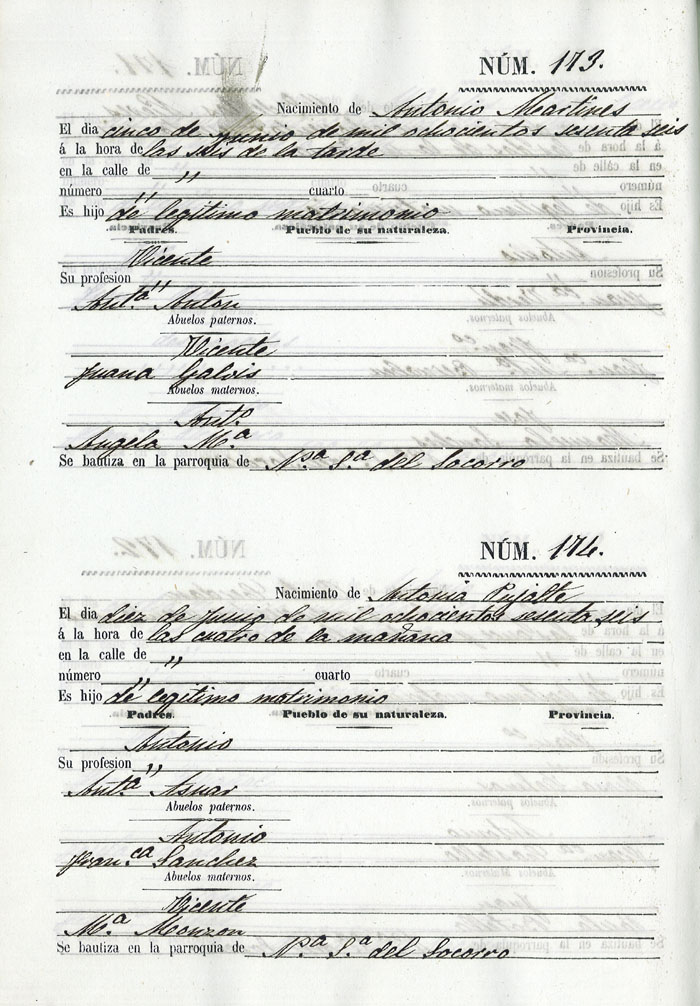 NÚM. 173.
Nacimiento de Antonio Martines
El dia cinco de Junio de mil ochocientos sesenta seis
á la hora de las seis de la tarde
en la calle de "
número " cuarto
Es hijo de legitimo matrimonio
Padres. Pueblo de su naturaleza. Provincia.
Vicente
Su profesion "
Ant.ª Anton
Abuelos paternos.
Vicente
Juana Galvis
Abuelos maternos.
Ant.º
Angela M.ª
Se bautiza en la parroquia de N.ª S.ª del Socorro
NÚM. 174.
Nacimiento de Antonia Pujalte
El dia diez de Junio de mil ochocientos sesenta seis
á la hora de las cuatro de la mañana
en la calle de "
número " cuarto
Es hijo de legitimo matrimonio
Padres. Pueblo de su naturaleza. Provincia.
Antonio
Su profesion "
Ant.ª Asnar
Abuelos paternos.
Antonio
Fran.ca Sanchez
Abuelos maternos.
Vicente
M.ª Monzon
Se bautiza en la parroquia de N.ª S.ª del Socorro